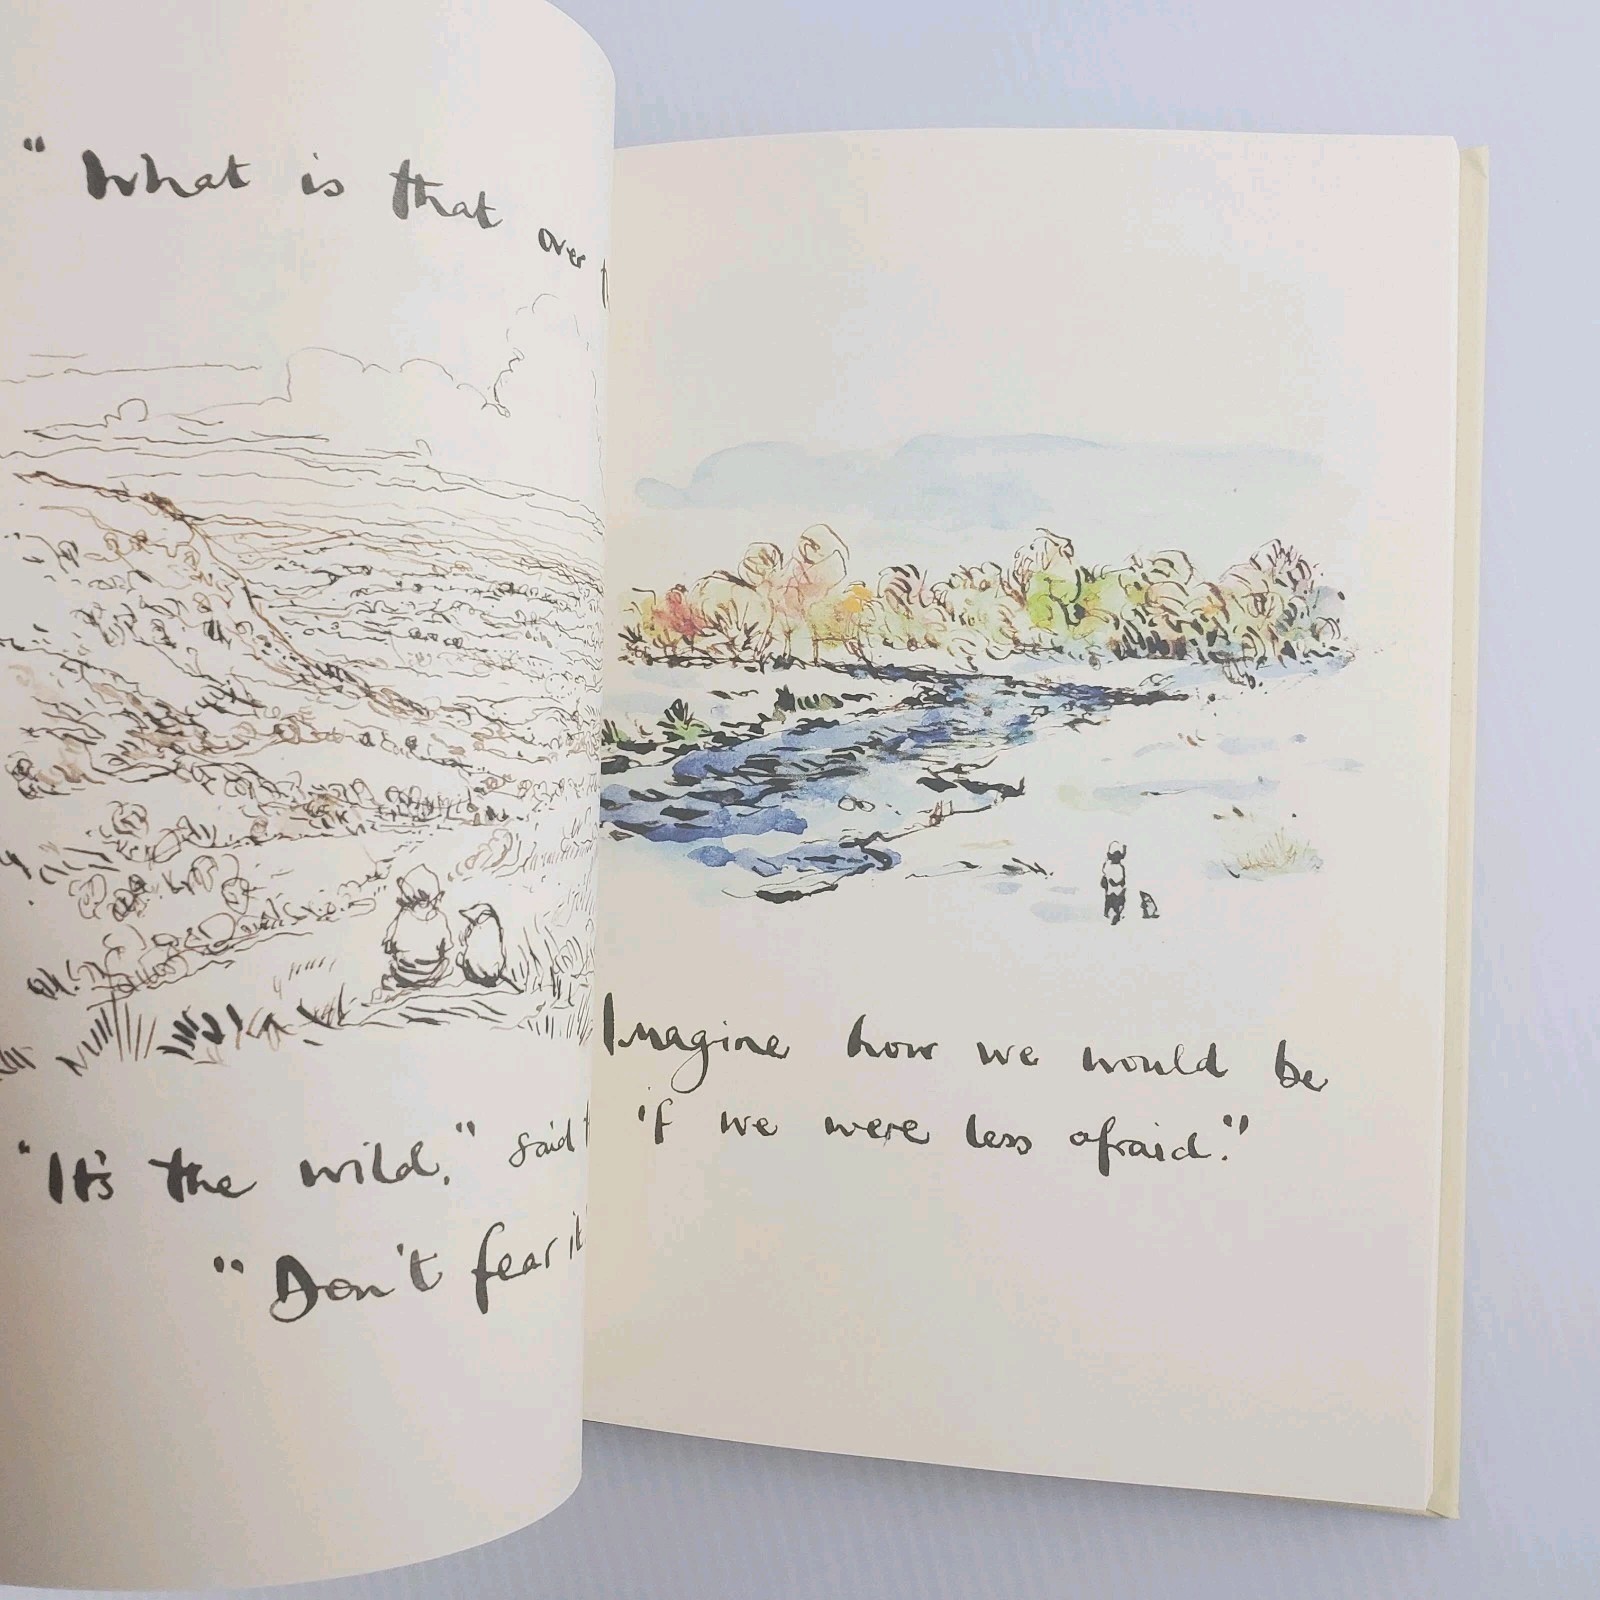 " What is that over
"It's the wild," said
"Don't fear it
Imagine how we would be
if we were less afraid."